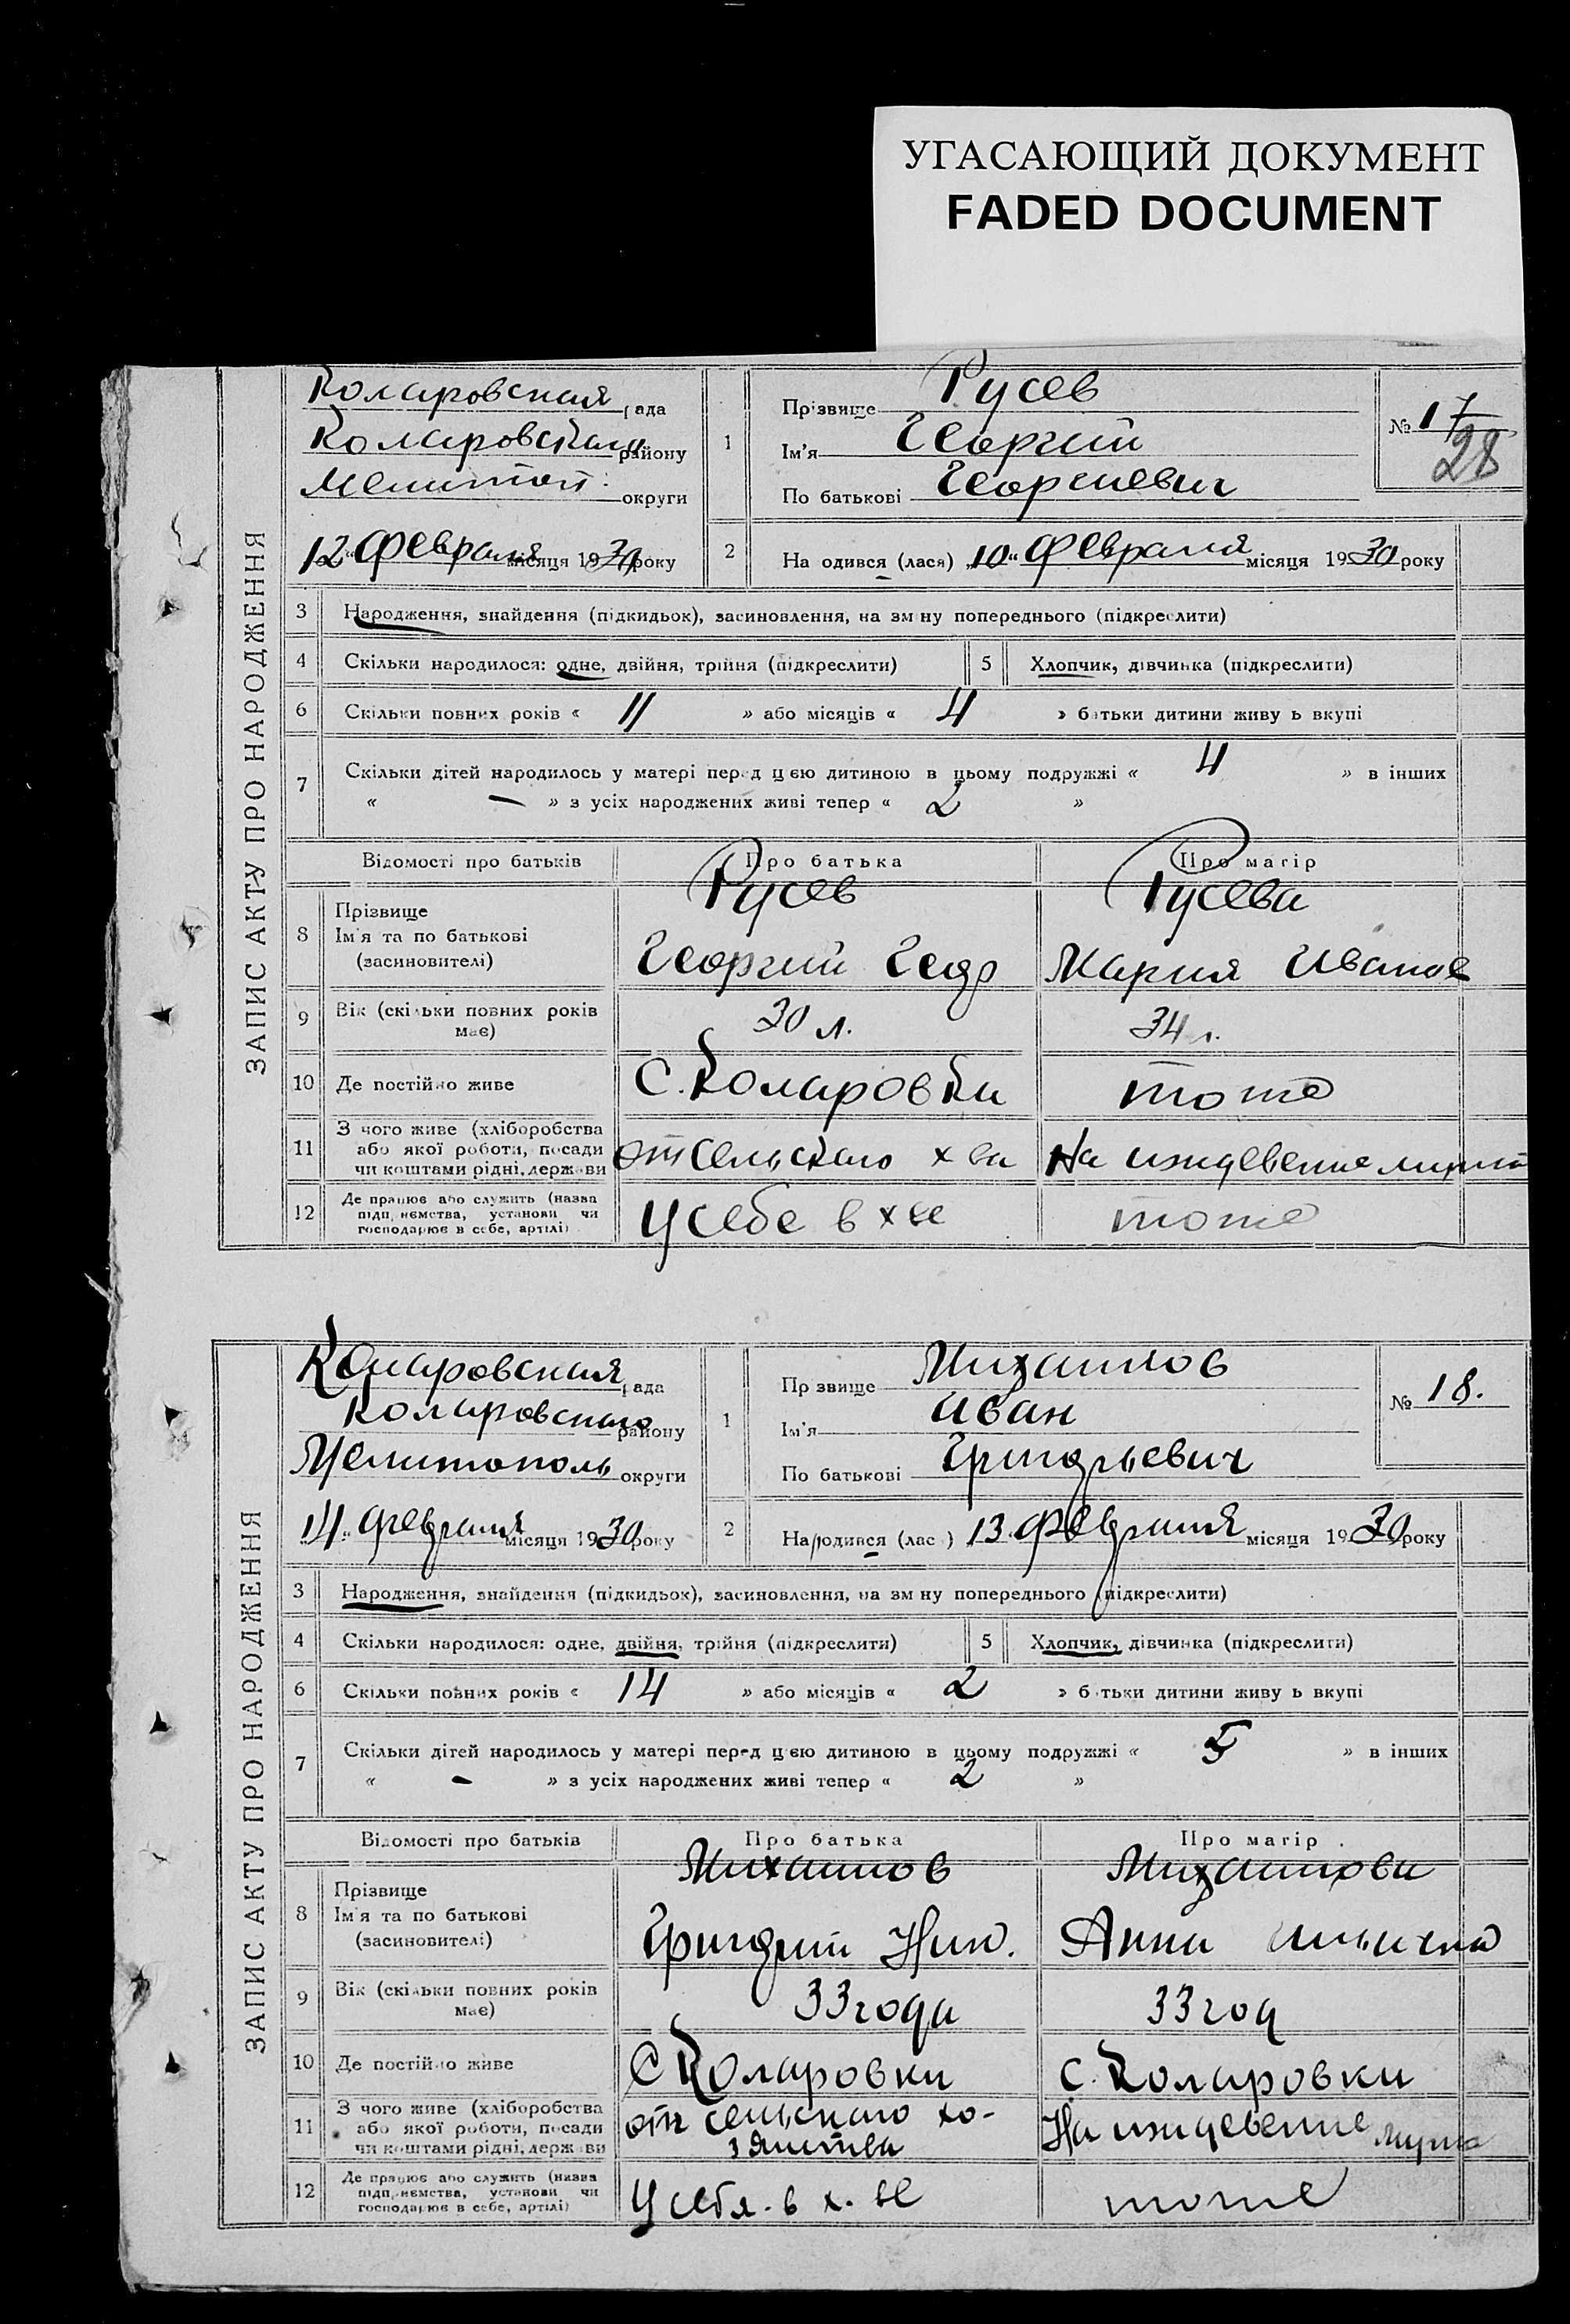 УГАСАЮЩИЙ ДОКУМЕНТ
FADED DOCUMENT
ЗАПИС АКТУ ПРО НАРОДЖЕННЯ
Коларовская рада
Коларовского району
Мелитоп. округи
12 „ февраля місяця 1930 року
1
Прізвище Русев
Ім'я Георгий
По батькові Георгиевич
№ 17
28
2
На одився (лася) „10 “ февраля місяця 1930 року
3 Народження, знайдення (підкидьок), засиновлення, на зм ну попереднього (підкреслити)
4 Скільки народилося: одне, двійня, трійня (підкреслити) 5 Хлопчик, дівчинка (підкреслити)
6 Скільки повних років « 11 » або місяців « 4 » батьки дитини живу ь вкупі
7 Скільки дітей народилось у матері перед цією дитиною в цьому подружжі « 4 » в інших
« — » з усіх народжених живі тепер « 2 »
Відомості про батьків Про батька Про матір
8 Прізвище Русев Русева
Ім'я та по батькові Георгий Мария Иванов
(засиновителі)
9 Вік (скільки повних років має) 30 л. 34 л.
10 Де постійно живе С. Коларовка тоже
11 З чого живе (хліборобства або якої роботи, посади чи коштами рідні, держави от сельского х ва На иждевение мужа
12 Де працює або служить (назва підп иємства, установи чи господарює в себе, артілі) У себе в х ве тоже
ЗАПИС АКТУ ПРО НАРОДЖЕННЯ
Коларовская рада
Коларовского району
Мелитополь округи
14 „ февраля місяця 1930 року
1
Пр звище Михайлов
Ім'я Иван
По батькові Григорьевич
№ 18.
2
Народився (лас ) 13 „ февраля місяця 1930 року
3 Народження, знайдення (підкидьок), засиновлення, на зм ну попереднього (підкреслити)
4 Скільки народилося: одне, двійня, трійня (підкреслити) 5 Хлопчик, дівчинка (підкреслити)
6 Скільки повних років « 14 » або місяців « 2 » б тьки дитини живу ь вкупі
7 Скільки дітей народилось у матері перед цією дитиною в цьому подружжі « 5 » в інших
« — » з усіх народжених живі тепер « 2 »
Відомості про батьків Про батька Про матір
8 Прізвище Михайлов Михайлова
Ім'я та по батькові Григорий Ник. Анна Ильична
(засиновителі)
9 Вік (скільки повних років має) 33 года 33 год
10 Де постійно живе С Коларовки С. Коларовки
11 З чого живе (хліборобства або якої роботи, посади чи коштами рідні, держави от сельского хо-зяйства На иждевение мужа
12 Де працює або служить (назва підп иємства, установи чи господарює в себе, артілі) У себя в х. ве тоже